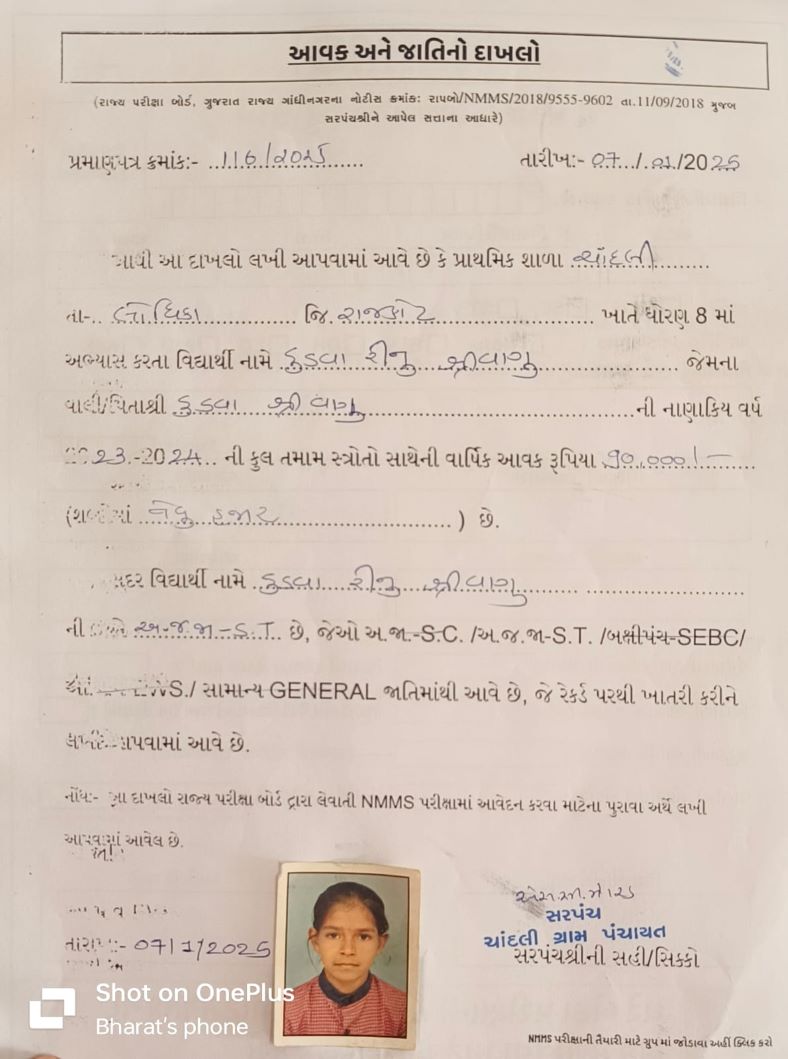 આવક અને જાતિનો દાખલો
(રાજ્ય પરીક્ષા બોર્ડ, ગુજરાત રાજ્ય ગાંધીનગરના નોટીસ ક્રમાંક: રાપબો/NMMS/2018/9555-9602 તા.11/09/2018 મુજબ
સરપંચશ્રીને આપેલ સત્તાના આધારે)
પ્રમાણપત્ર ક્રમાંક:- 116/2025 તારીખ:- 07/01/2025
આથી આ દાખલો લખી આપવામાં આવે છે કે પ્રાથમિક શાળા ચાંદલી
તા-.. લોધિકા જિ. રાજકોટ ખાતે ધોરણ 8 માં
અભ્યાસ કરતા વિદ્યાર્થી નામે કુડવા રીનુ શ્રીવાગુ જેમના
વાલી/પિતાશ્રી કુડવા શ્રીવાગુ ની નાણાકિય વર્ષ
2023-2024.. ની કુલ તમામ સ્ત્રોતો સાથેની વાર્ષિક આવક રૂપિયા ૯૦,૦૦૦/-
(શબ્દોમાં નેવુ હજાર ) છે.
સદર વિદ્યાર્થી નામે કુડવા રીનુ શ્રીવાગુ
ની અ.જ.જા-S.T. છે, જેઓ અ.જા.-S.C. /અ.જ.જા-S.T. /બક્ષીપંચ-SEBC/
EWS./ સામાન્ય GENERAL જાતિમાંથી આવે છે, જે રેકર્ડ પરથી ખાતરી કરીને
લખી આપવામાં આવે છે.
નોંધ:- આ દાખલો રાજ્ય પરીક્ષા બોર્ડ દ્વારા લેવાતી NMMS પરીક્ષામાં આવેદન કરવા માટેના પુરાવા અર્થે લખી
આપવામાં આવેલ છે.
સરપંચ
ચાંદલી ગ્રામ પંચાયત
તારીખ:- 07/1/2025 સરપંચશ્રીની સહી/સિક્કો
Shot on OnePlus
Bharat's phone
NMMS પરીક્ષાની તૈયારી માટે ગ્રુપ માં જોડાવા અહીં ક્લિક કરો